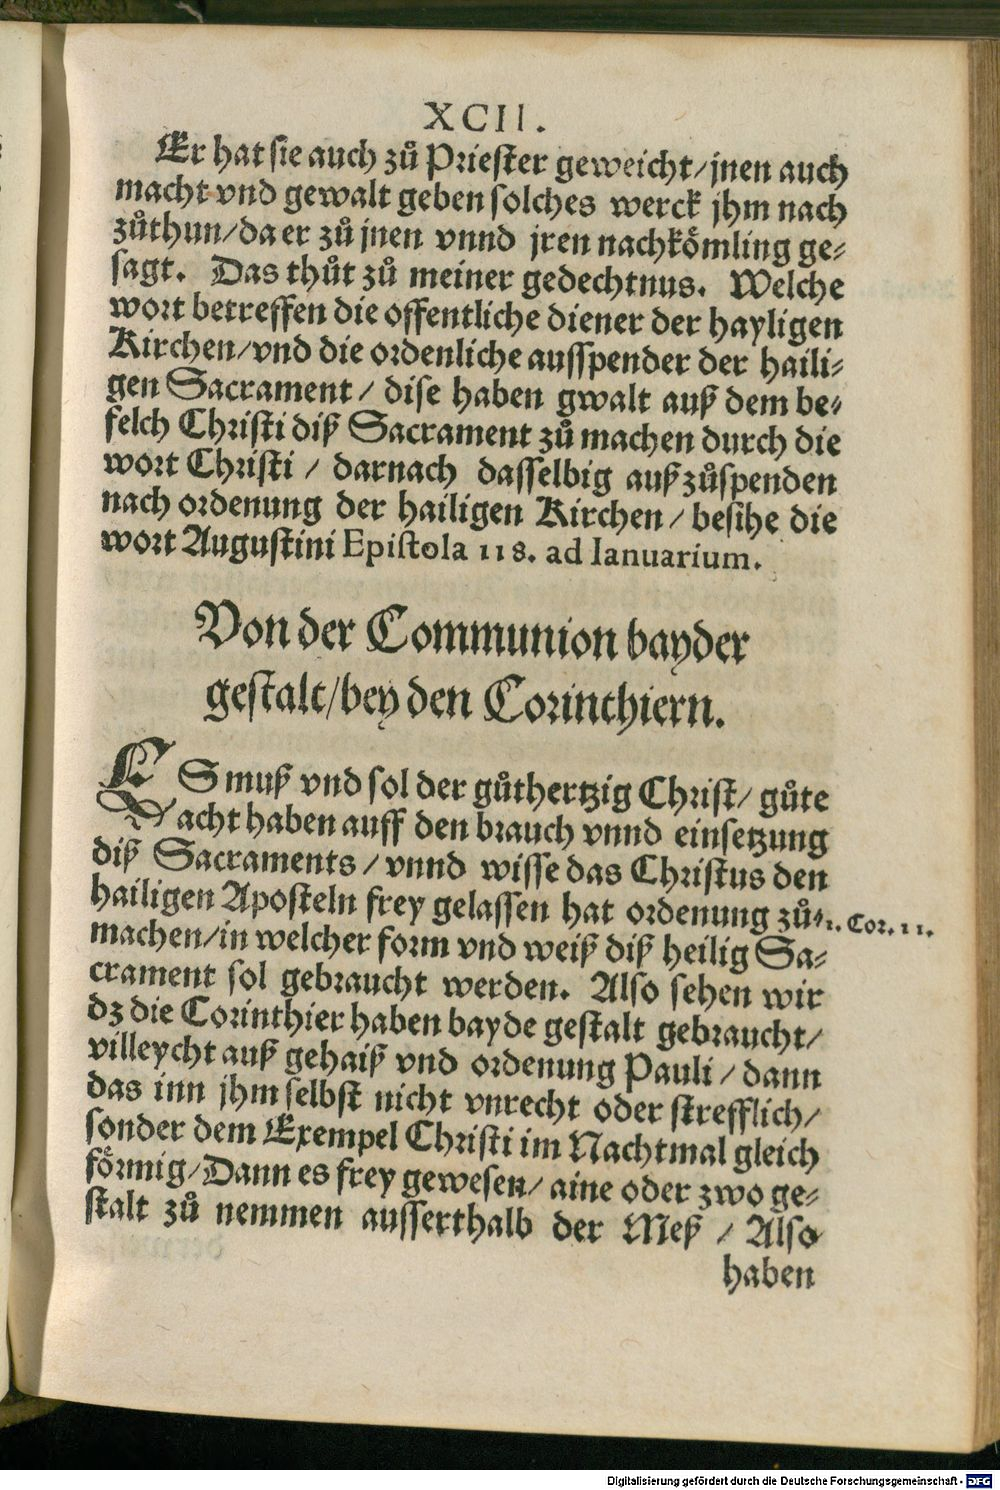 XCII.
Er hat sie auch zů Priester geweicht/jnen auch
macht vnd gewalt geben solches werck jhm nach
zůthun/da er zů jnen vnnd jren nachkömling ge-
sagt. Das thůt zů meiner gedechtnus. Welche
wort betreffen die offentliche diener der hayligen
Kirchen/vnd die ordenliche ausspender der haili-
gen Sacrament/ dise haben gwalt auß dem be-
felch Christi diß Sacrament zů machen durch die
wort Christi / darnach dasselbig außzůspenden
nach ordenung der hailigen Kirchen/ besihe die
wort Augustini Epistola 118. ad Ianuarium.
Von der Communion bayder
gestalt/bey den Corinthiern.
ES muß vnd sol der gůthertzig Christ/ gůte
acht haben auff den brauch vnnd einsetzung
diß Sacraments / vnnd wisse das Christus den
hailigen Aposteln frey gelassen hat ordenung zů-
1. Cor. 11.
machen/in welcher form vnd weiß diß heilig Sa-
crament sol gebraucht werden. Also sehen wir
dz die Corinthier haben bayde gestalt gebraucht/
villeycht auß gehaiß vnd ordenung Pauli / dann
das inn jhm selbst nicht vnrecht oder strefflich/
sonder dem Exempel Christi im Nachtmal gleich
förmig/Dann es frey gewesen/ aine oder zwo ge-
stalt zů nemmen ausserthalb der Meß / Also
haben
Digitalisierung gefördert durch die Deutsche Forschungsgemeinschaft - DFG